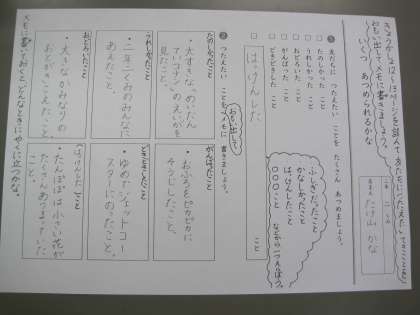 おもい出してメモに書きましょう。
いくつ あつめられるかな
二年 二くみ
名まえ たけ山 かな
❶ 友だちに つたえたい ことを たくさん あつめましょう。
たのしかった こと
うれしかった こと
おどろいた こと
がんばった こと
どきどきした こと
はっけんした こと
ふしぎだったこと
かなしかったこと
はっけんしたこと
○○○なこと
❷ つたえたい ことを メモに 書きましょう。
おもい出して
たのしかったこと
・大すきな「めいたん
ていコナン」のえいがを
見たこと。
がんばったこと
・おふろをピカピカに
そうじしたこと。
うれしかったこと
・二年二くみのみんなに
あえたこと。
どきどきしたこと
・ゆめでジェットコー
スターにのったこと。
おどろいたこと
・大きなかみなりの
おとがきこえたこと。
はっけんしたこと
・たんぽぽは小さい花が
たくさんあつまっていた
こと。
メモに書いておくと、どんなときにやくに立つかな。